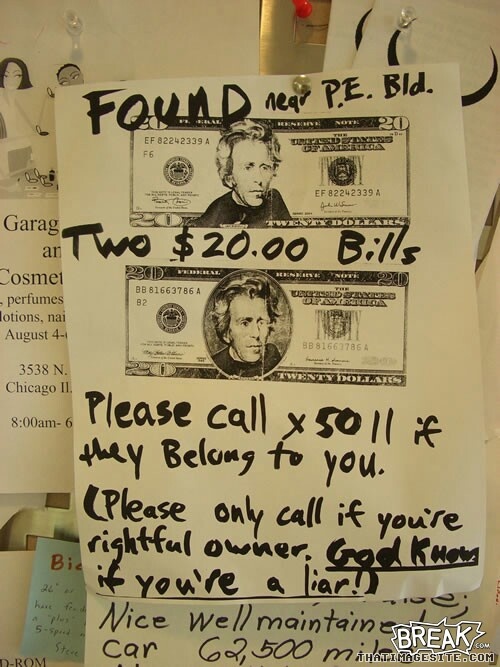 FOUND near P.E. Bld.
FEDERAL RESERVE NOTE
20 20
THE
UNITED STATES
OF AMERICA
EF 82242339 A
F6
EF 82242339 A
20 TWENTY DOLLARS
Two $20.00 Bills
20 FEDERAL RESERVE NOTE 20
THE
UNITED STATES
OF AMERICA
BB 81663786 A
B2
BB 81663786 A
20 TWENTY DOLLARS 20
Please call x5011 if
they Belong to you.
(Please only call if you're
rightful owner. God Knows
if you're a liar!)
Garag
an
Cosmet
, perfumes
lotions, nai
August 4-
3538 N.
Chicago Il.
8:00am- 6
Bic
5-speed
Steve
D-ROM
Nice well maintained
Car 62,500 mil
BREAK.COM
THATIMAGESITE.COM